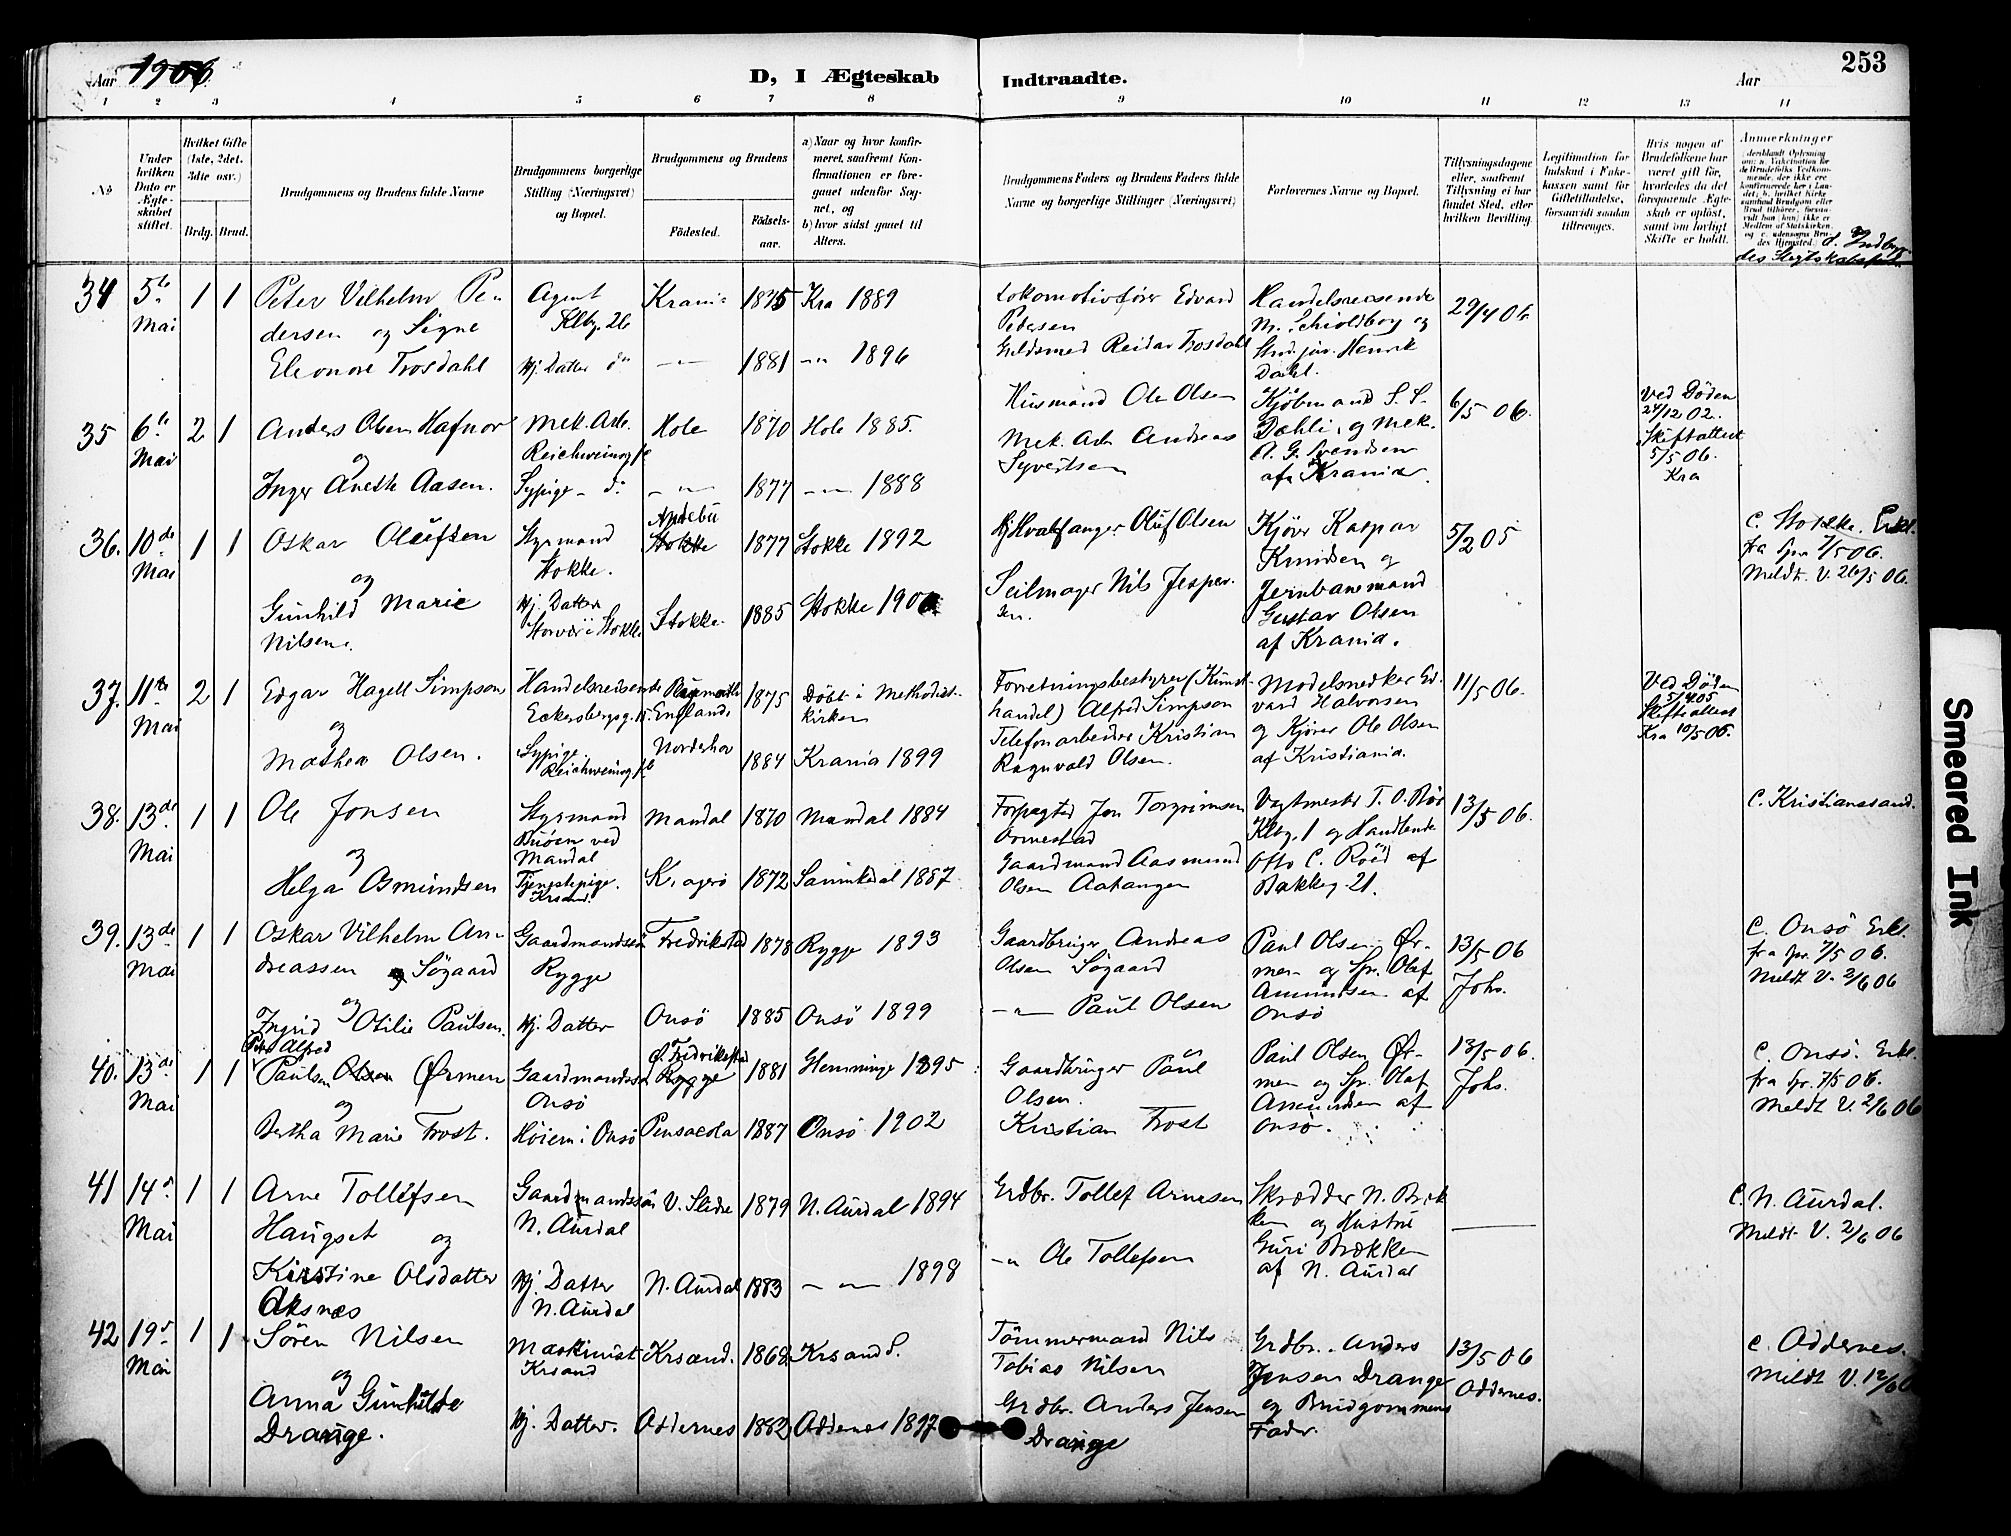 Aar 1906
D, I Ægteskab Indtraadte.
Aar
253
1 2 3 4 5 6 7 8 9 10 11 12 13 14
No
Under hvilken Dato er Ægteskabet stiftet.
Hvilket Gifte (1ste, 2det, 3die osv.)
Brdg. Brud.
Brudgommens og Brudens fulde Navne
Brudgommens borgerlige Stilling (Næringsvei) og Bopæl.
Brudgommens og Brudens
Födested.
Födsels-aar.
a) Naar og hvor konfirmeret, saafremt Konfirmationen er foregaaet udenfor Sognet, og
b) hvor sidst gaaet til Alters.
Brudgommens Faders og Brudens Faders fulde Navne og borgerlige Stillinger (Næringsvei)
Forlovernes Navne og Bopæl.
Tillysningsdagene eller, saafremt Tillysning ei har fundet Sted, efter hvilken Bevilling.
Legitimation for Indskud i Enkekassen samt for Giftetilladelse, forsaavidt saadan tiltrænges.
Hvis nogen af Brudefolkene har været gift før, hvorledes da det foregaaende Ægteskab er opløst, samt om lovligt Skifte er holdt.
Anmerkninger
34 5te Mai 1 1
Peter Vilhelm Pedersen og Signe
Eleonore Trosdahl
Agent
Klbg. 26
Hj. Datter do
Krania 1875 Kra 1889
—"— 1881 —"— 1896
Lokomotivfører Edvard Pedersen
Guldsmed Reidar Trosdahl
Handelsreisende
M. Schioldborg og
Stud. jur. Henrik
Dahl.
29/4 06.
35 6te Mai 2 1
Anders Olsen Hafnor
og
Inger Anette Aasen.
Mek. Arb.
Reichweinsg
Sypige - do
Hole 1870 Hole 1885.
—"— 1877 —"— 1888
Husmand Ole Olsen
Mek. Arb Andreas
Syvertsen
Kjöbmand S. S.
Dæhli, og Mek.
A. G. Svendsen
af Krania.
6/5 06.
Ved Döden
24/12 02.
Skifteattest
5/5 06.
Kra
36. 10de Mai 1 1
Oskar Olufsen
og
Gunhild Marie
Nilsen.
Styrmand
Stokke.
Hj. Datter
Andebu
Stokke 1877 Stokke 1892
Stokke 1885 Stokke 1900
Hvalfanger Oluf Olsen
Seilmager Nils Jespersen.
Kjører Kaspar
Knudsen og
Jernbanemand
Gustav Olsen
af Krania.
5/2 05
C. Stokke. Erkl.
fra Spr. 7/5 06.
Meldt. V. 26/5 06.
37. 11te Mai 2 1
Edgar Hagell Simpson
og
Mathea Olsen.
Handelsreisende
Eckersbergsg. 15.
Sypige
England 1875 Döbt i Methodist-
kirken
Norderhov 1884 Krania 1899
Forretningsbestyrer (Kunst-
handel) Alfred Simpson
Telefonarbeider Kristian
Ragnvald Olsen.
Modelsnedker Ed-
vard Halvorsen
og Kjører Ole Olsen
af Kristiania.
11/5 06.
Ved Döden
Skifteattest
Kra 10/5 06.
38. 13de Mai 1 1
Ole Jonsen
og
Helga Osmundsen
Styrmand
Buöen ved
Mandal
Tjenestepige.
Krsand.
Mandal 1870 Mandal 1884
Kragerö 1872 Sannikedal 1887
Forpagter Jon Torgrimsen
Ormestad
Gaardmand Aasmund
Olsen Aatangen
Vagtmester T. O. Röe
Klbg. 1 og Handlende
Otto C. Röed af
Bakkeg 21.
13/5 06.
C. Kristianssand.
39. 13de Mai 1 1
Oskar Vilhelm An-
dreassen Søgaard
og
Ingrid Otilie Paulsen.
Gaardmandssön
Rygge
Hj. Datter
Fredrikstad 1878 Rygge 1893
Onsö 1885 Onsö 1899
Gaardbruger Andreas
Olsen Søgaard
—"— Paul Olsen
Paul Olsen Ør-
men og Spr. Olaf
Amundsen af
Onsö
13/5 06
Johs.
C. Onsö Erkl.
fra Spr. 7/5 06.
Meldt V. 2/6 06
40. 13de Mai 1 1
Peter Alfred
Paulsen Olsen Ørmen
og
Bertha Marie Trost.
Gaardmandssön
Onsö
Höien i Onsö
Fredrikstad
Rygge 1881 Glemminge 1895
Pensacola 1887 Onsö 1902
Gaardbruger Paul
Olsen.
Kristian Trost
Paul Olsen Ør-
men og Spr. Olaf
Amundsen af
Onsö.
13/5 06.
Johs.
C. Onsö. Erkl.
fra Spr. 7/5 06.
Meldt V. 2/6 06
41 14de Mai 1 1
Arne Tollefsen
Haugset og
Kirstine Olsdatter
Aksnæs
Gaardmandssön
N. Aurdal
Hj. Datter
N. Aurdal
V. Slidre 1879 N. Aurdal 1894
N. Aurdal 1883 —"— 1898
Grdbr. Tollef Arnesen
—"— Ole Tollefsen
Skrædder N. Bræk-
ken og Hustru
Guri Brækken
af N. Aurdal
C. N. Aurdal.
Meldt V. 2/6 06
42 19de Mai 1 1
Sören Nilsen
og
Anna Gunhilde
Drange.
Maskinist
Krsand
Hj. Datter.
Krsand. 1868 Krsand S.
Oddernes 1882 Oddernes 1897
Tömmermand Nils
Tobias Nilsen
Grdbr. Anders Jensen
Drange
Grdbr. Anders
Jensen Drange
og Brudgommens
Fader.
13/5 06
Oddernes.
C. Oddernes.
Meldt V. 12/6 0
Smeared Ink